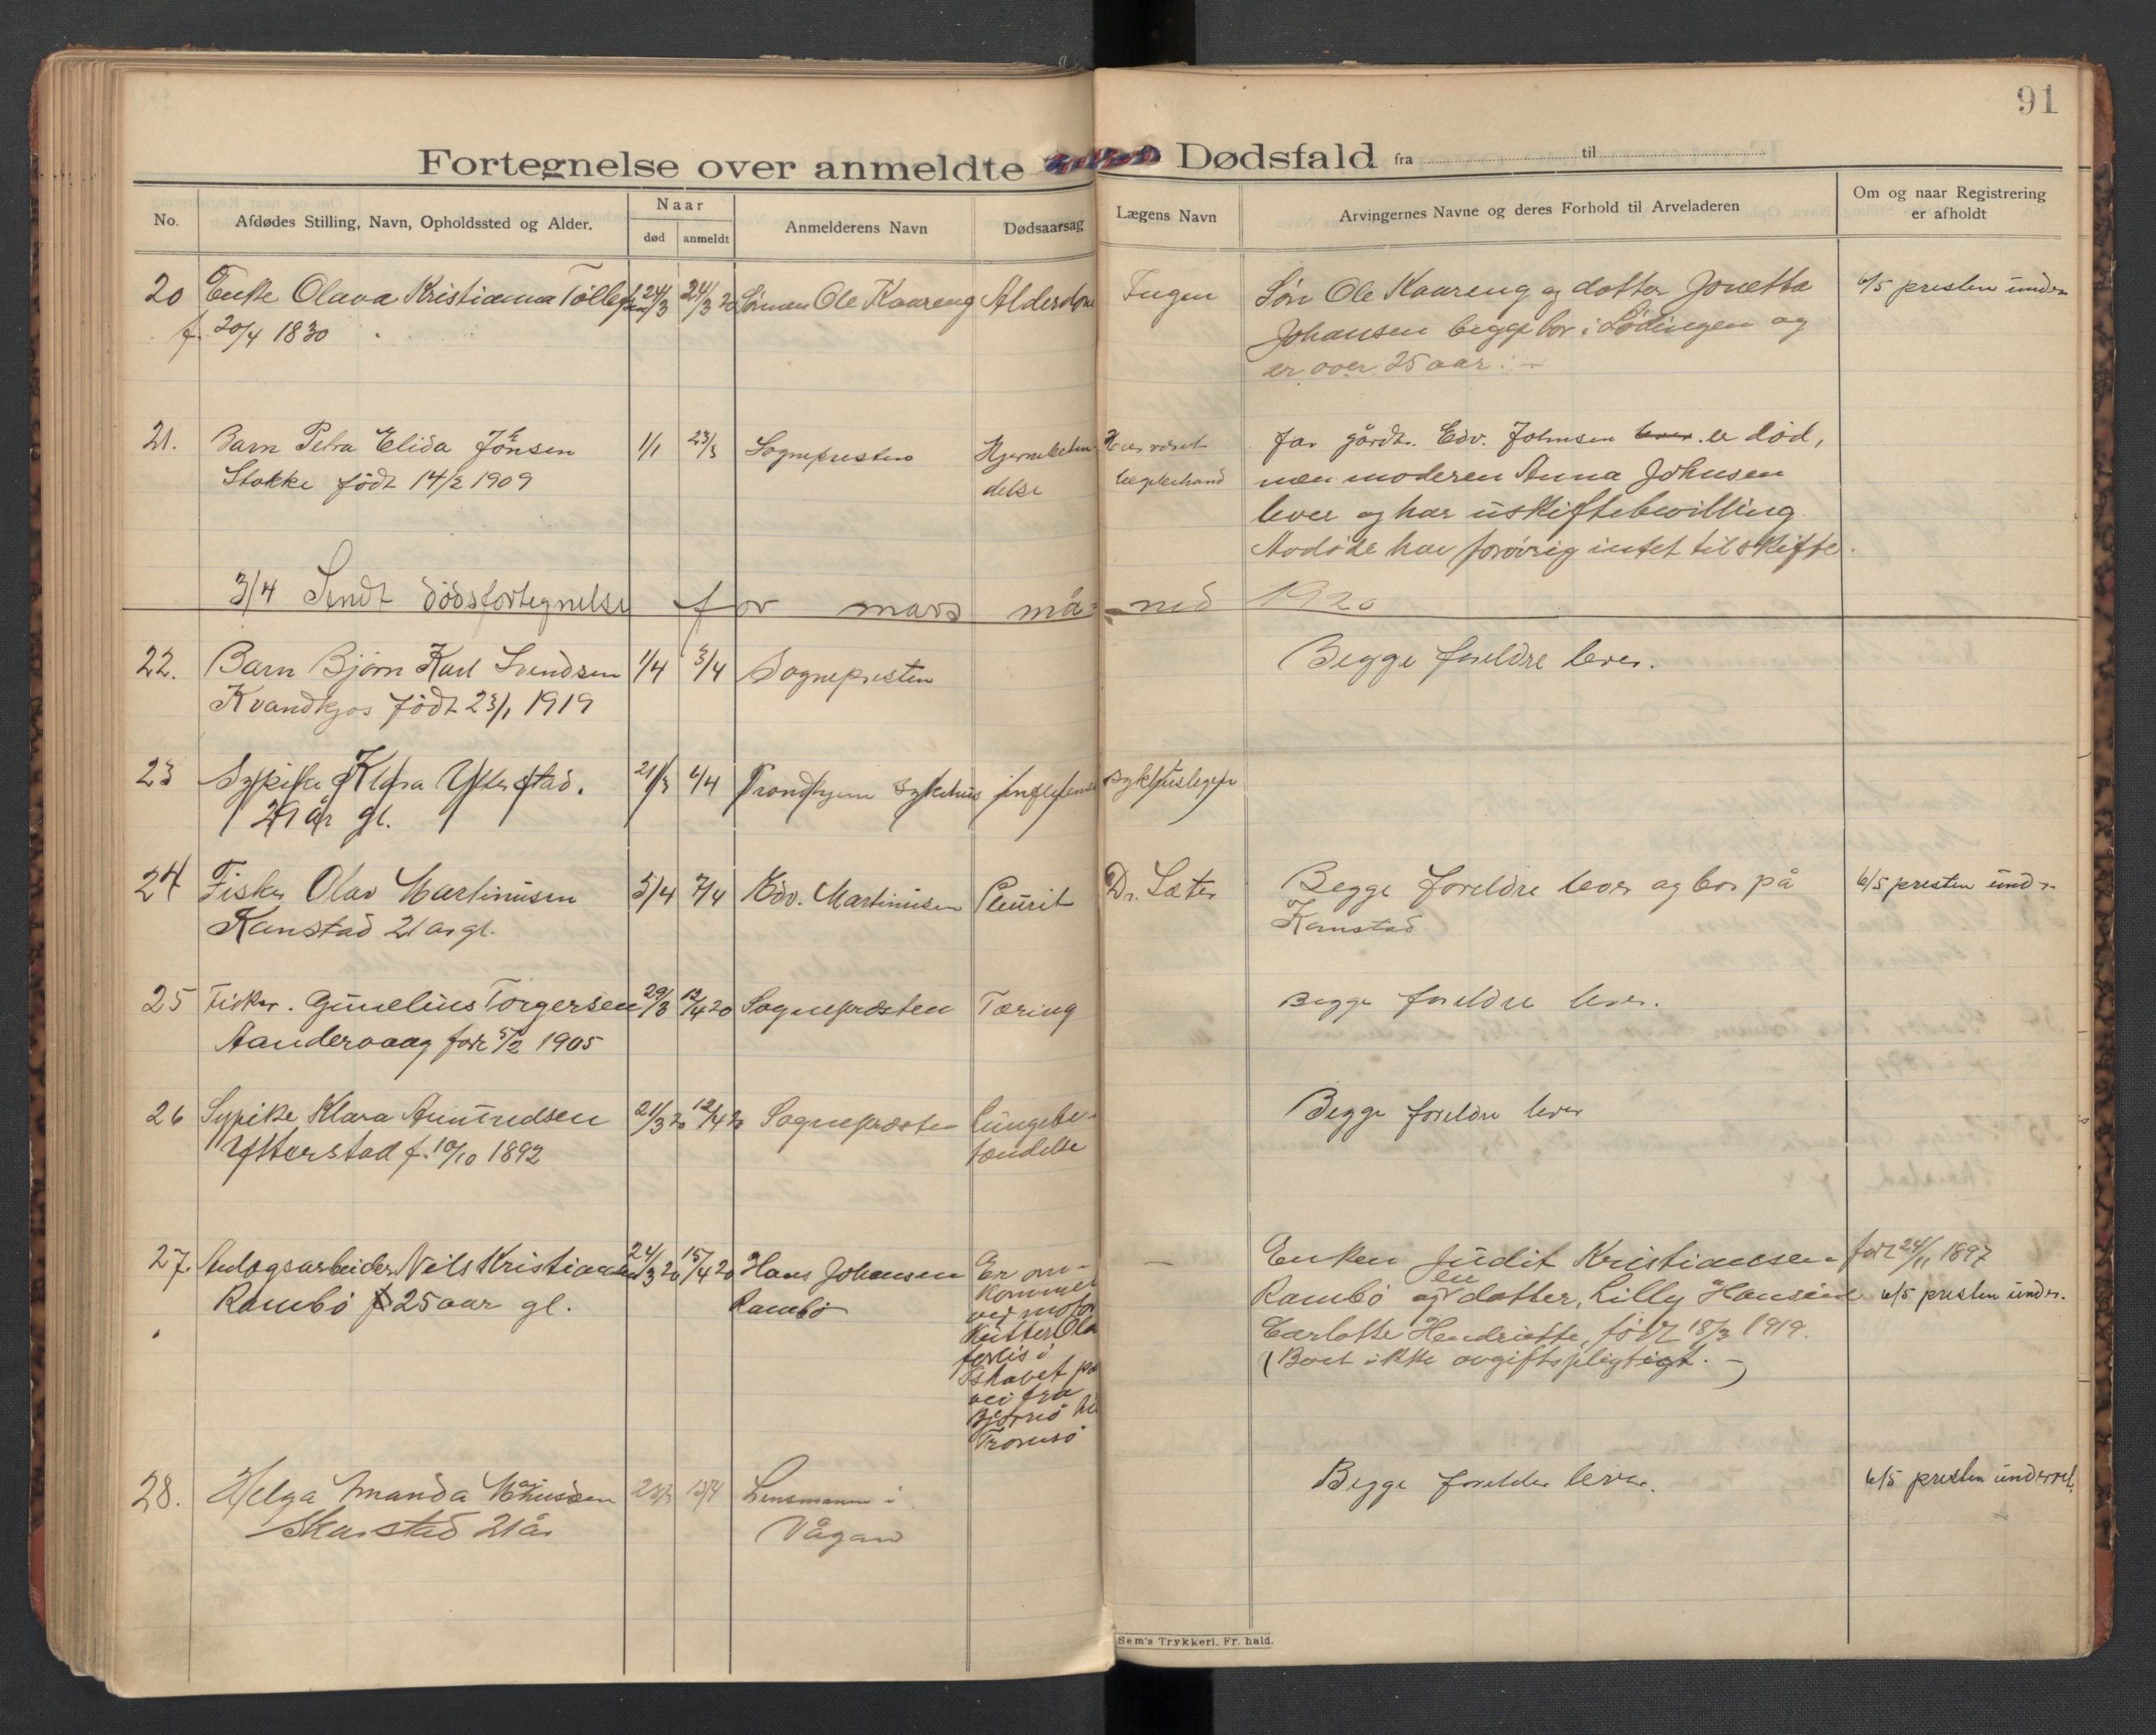 91
Fortegnelse over anmeldte Dødsfald fra til
No. Afdødes Stilling, Navn, Opholdssted og Alder. Naar Anmelderens Navn Dødsaarsag Lægens Navn Arvingernes Navne og deres Forhold til Arveladeren Om og naar Registrering
død anmeldt er afholdt
20 Enke Olava Kristianna Tollefsen 24/3 24/3 20 Sønnen Ole Kaareng Alderdom Ingen Søn Ole Kaareng og datter Jonetta 6/5 presten under
f. 20/4 1830 Johansen begge bor i Lødingen og
er over 25 aar. —
21. Barn Petra Elida Johnsen 1/1 23/3 Sognepresten Hjernebeten- Har været Far gårdbr. Edv. Johnsen lever er død,
Stokke født 14/2 1909 delse legebehand men moderen Anna Johnsen
lever og har uskiftebevilling.
Avdøde har forøvrig intet til skifte.
3/4 Sendt dødsfortegnelse for mars måned 1920
22. Barn Bjørn Karl Svendsen 1/4 3/4 Sognepresten Begge foreldre lever.
Kvandkjos født 23/1 1919
23 Sypike Klara Ytterstad. 21/3 6/4 Trondhjem sykehus influensa sykehuslegen
29 år gl.
24 Fisker Olav Martinusen 5/4 7/4 Edv. Martinusen Pleurit Dr. Sæter Begge foreldre lever og bor på 6/5 presten under
Kanstad 21 år gl. Kanstad
25 Fisker. Gunelius Torgersen 29/3 12/4 20 Sognepræsten Tæring Begge foreldre lever.
Aandervaag født 5/2 1905
26 Sypike Klara Amundsen 21/3 20 12/4 20 Sognepræsten Lungebe- Begge foreldre lever
Ytterstad f. 10/10 1892 tændelse
27. Anlægsarbeider Nils Kristiansen 24/3 20 15/4 20 Hans Johansen Er om- — Enken Judit Kristiansen født 24/11 1897
Rambø 25 aar gl. Rambø kommet Rambø og en datter, Lilly Hansine 6/5 presten under.
ved motor Carlotte Hendriette, født 18/3 1919.
kutter Ola (Boet ikke avgiftspligtigt. —)
forlis i
Ishavet på
vei fra
Bjørnø til
Tromsø
28. Helga Amanda Mathiassen 23/3 15/4 Lensmannen i Begge foreldre lever. 6/5 presten underret.
Skarstad 21 år Vågan
Sem's Trykkeri, Fr. hald.